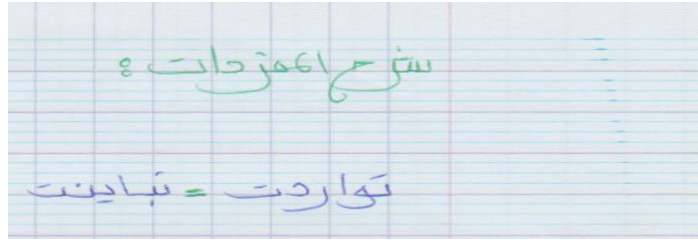 شرح المفردات :
تواردت = تباينت